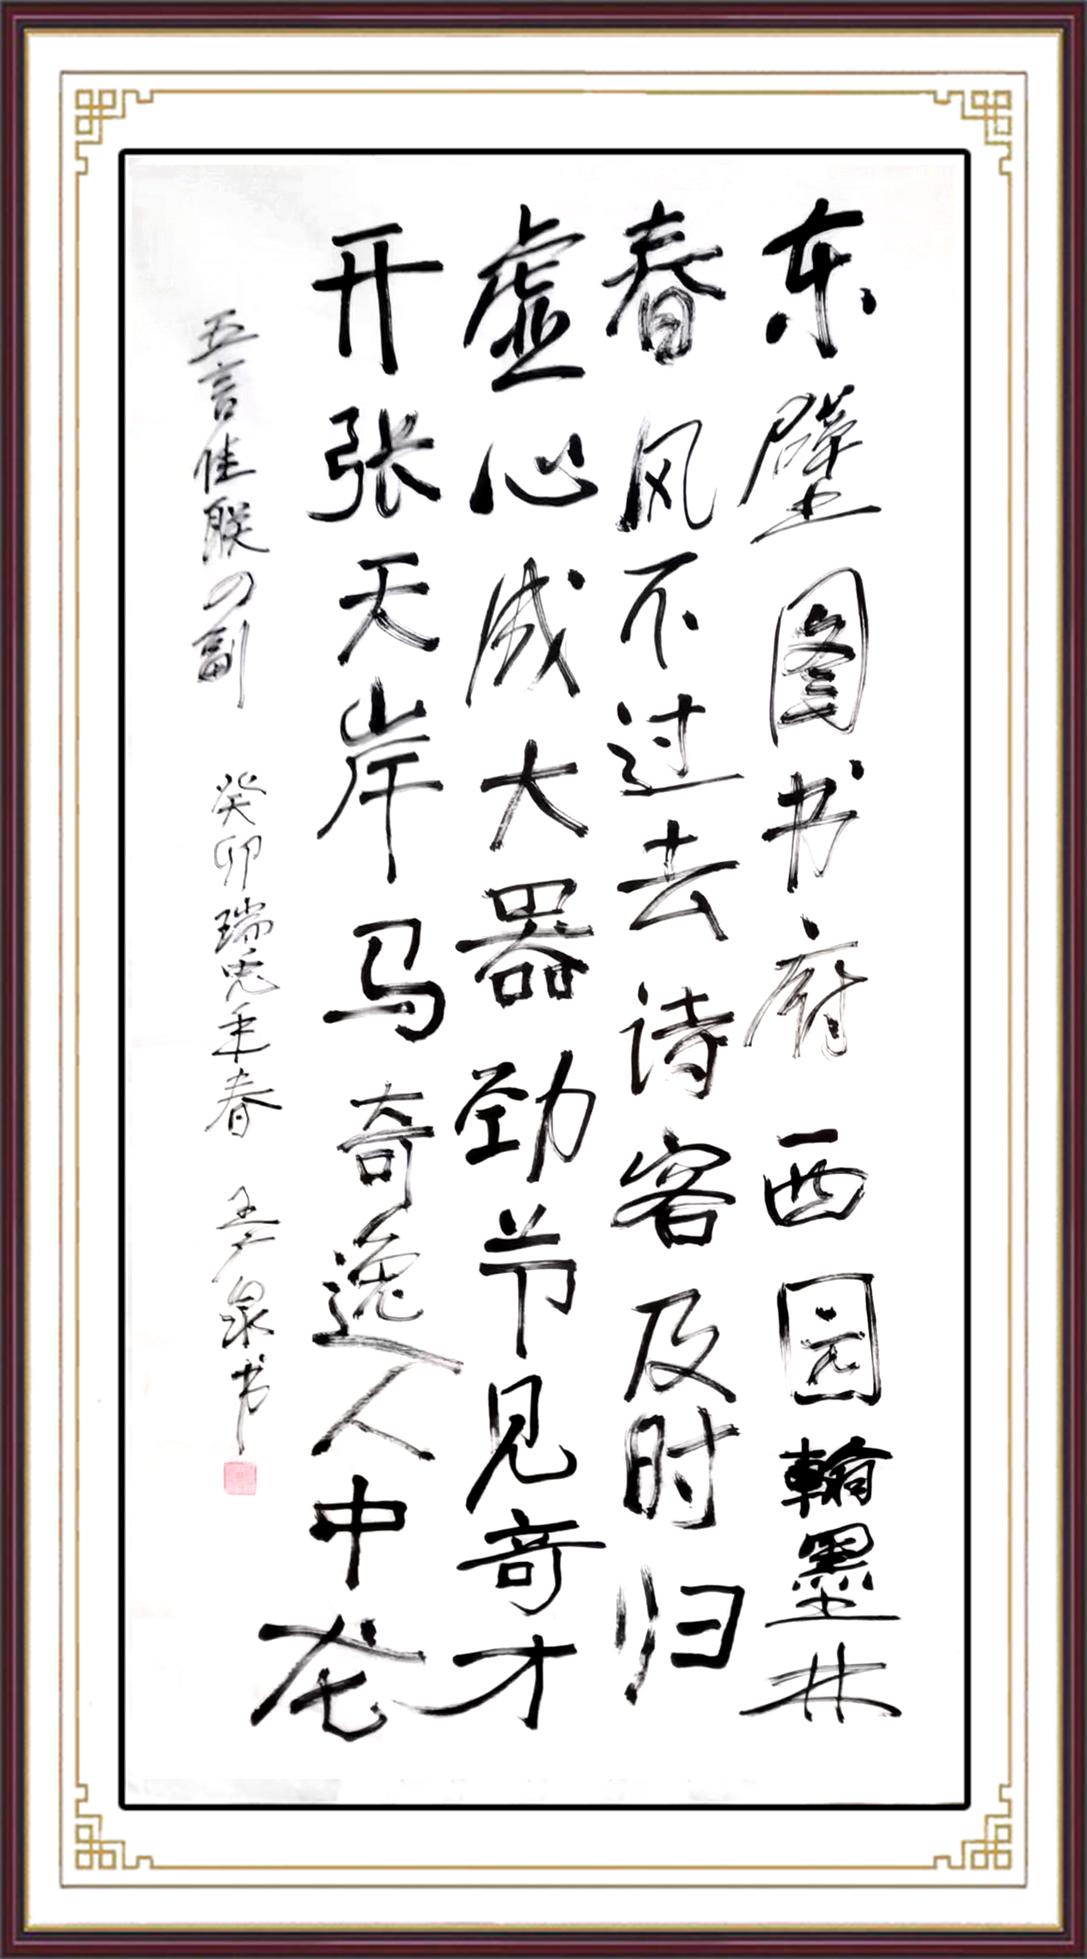 东壁图书府西园翰墨林
春风不过去诗客及时归
虚心成大器劲节见奇才
开张天岸马奇逸人中龙
五言佳联四副 癸卯瑞兔年春 泉书